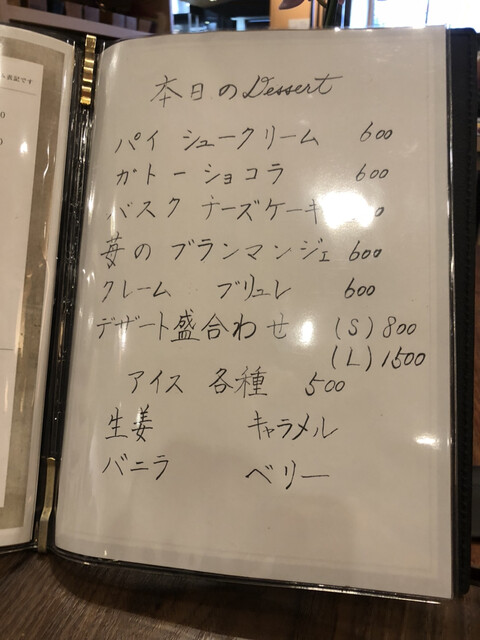 表記です
0
0
本日のDessert
パイ シュークリーム 600
ガトーショコラ 600
バスク チーズケーキ
苺の ブランマンジェ 600
クレーム ブリュレ 600
デザート盛合わせ (S) 800
(L) 1500
アイス 各種 500
生姜 キャラメル
バニラ ベリー